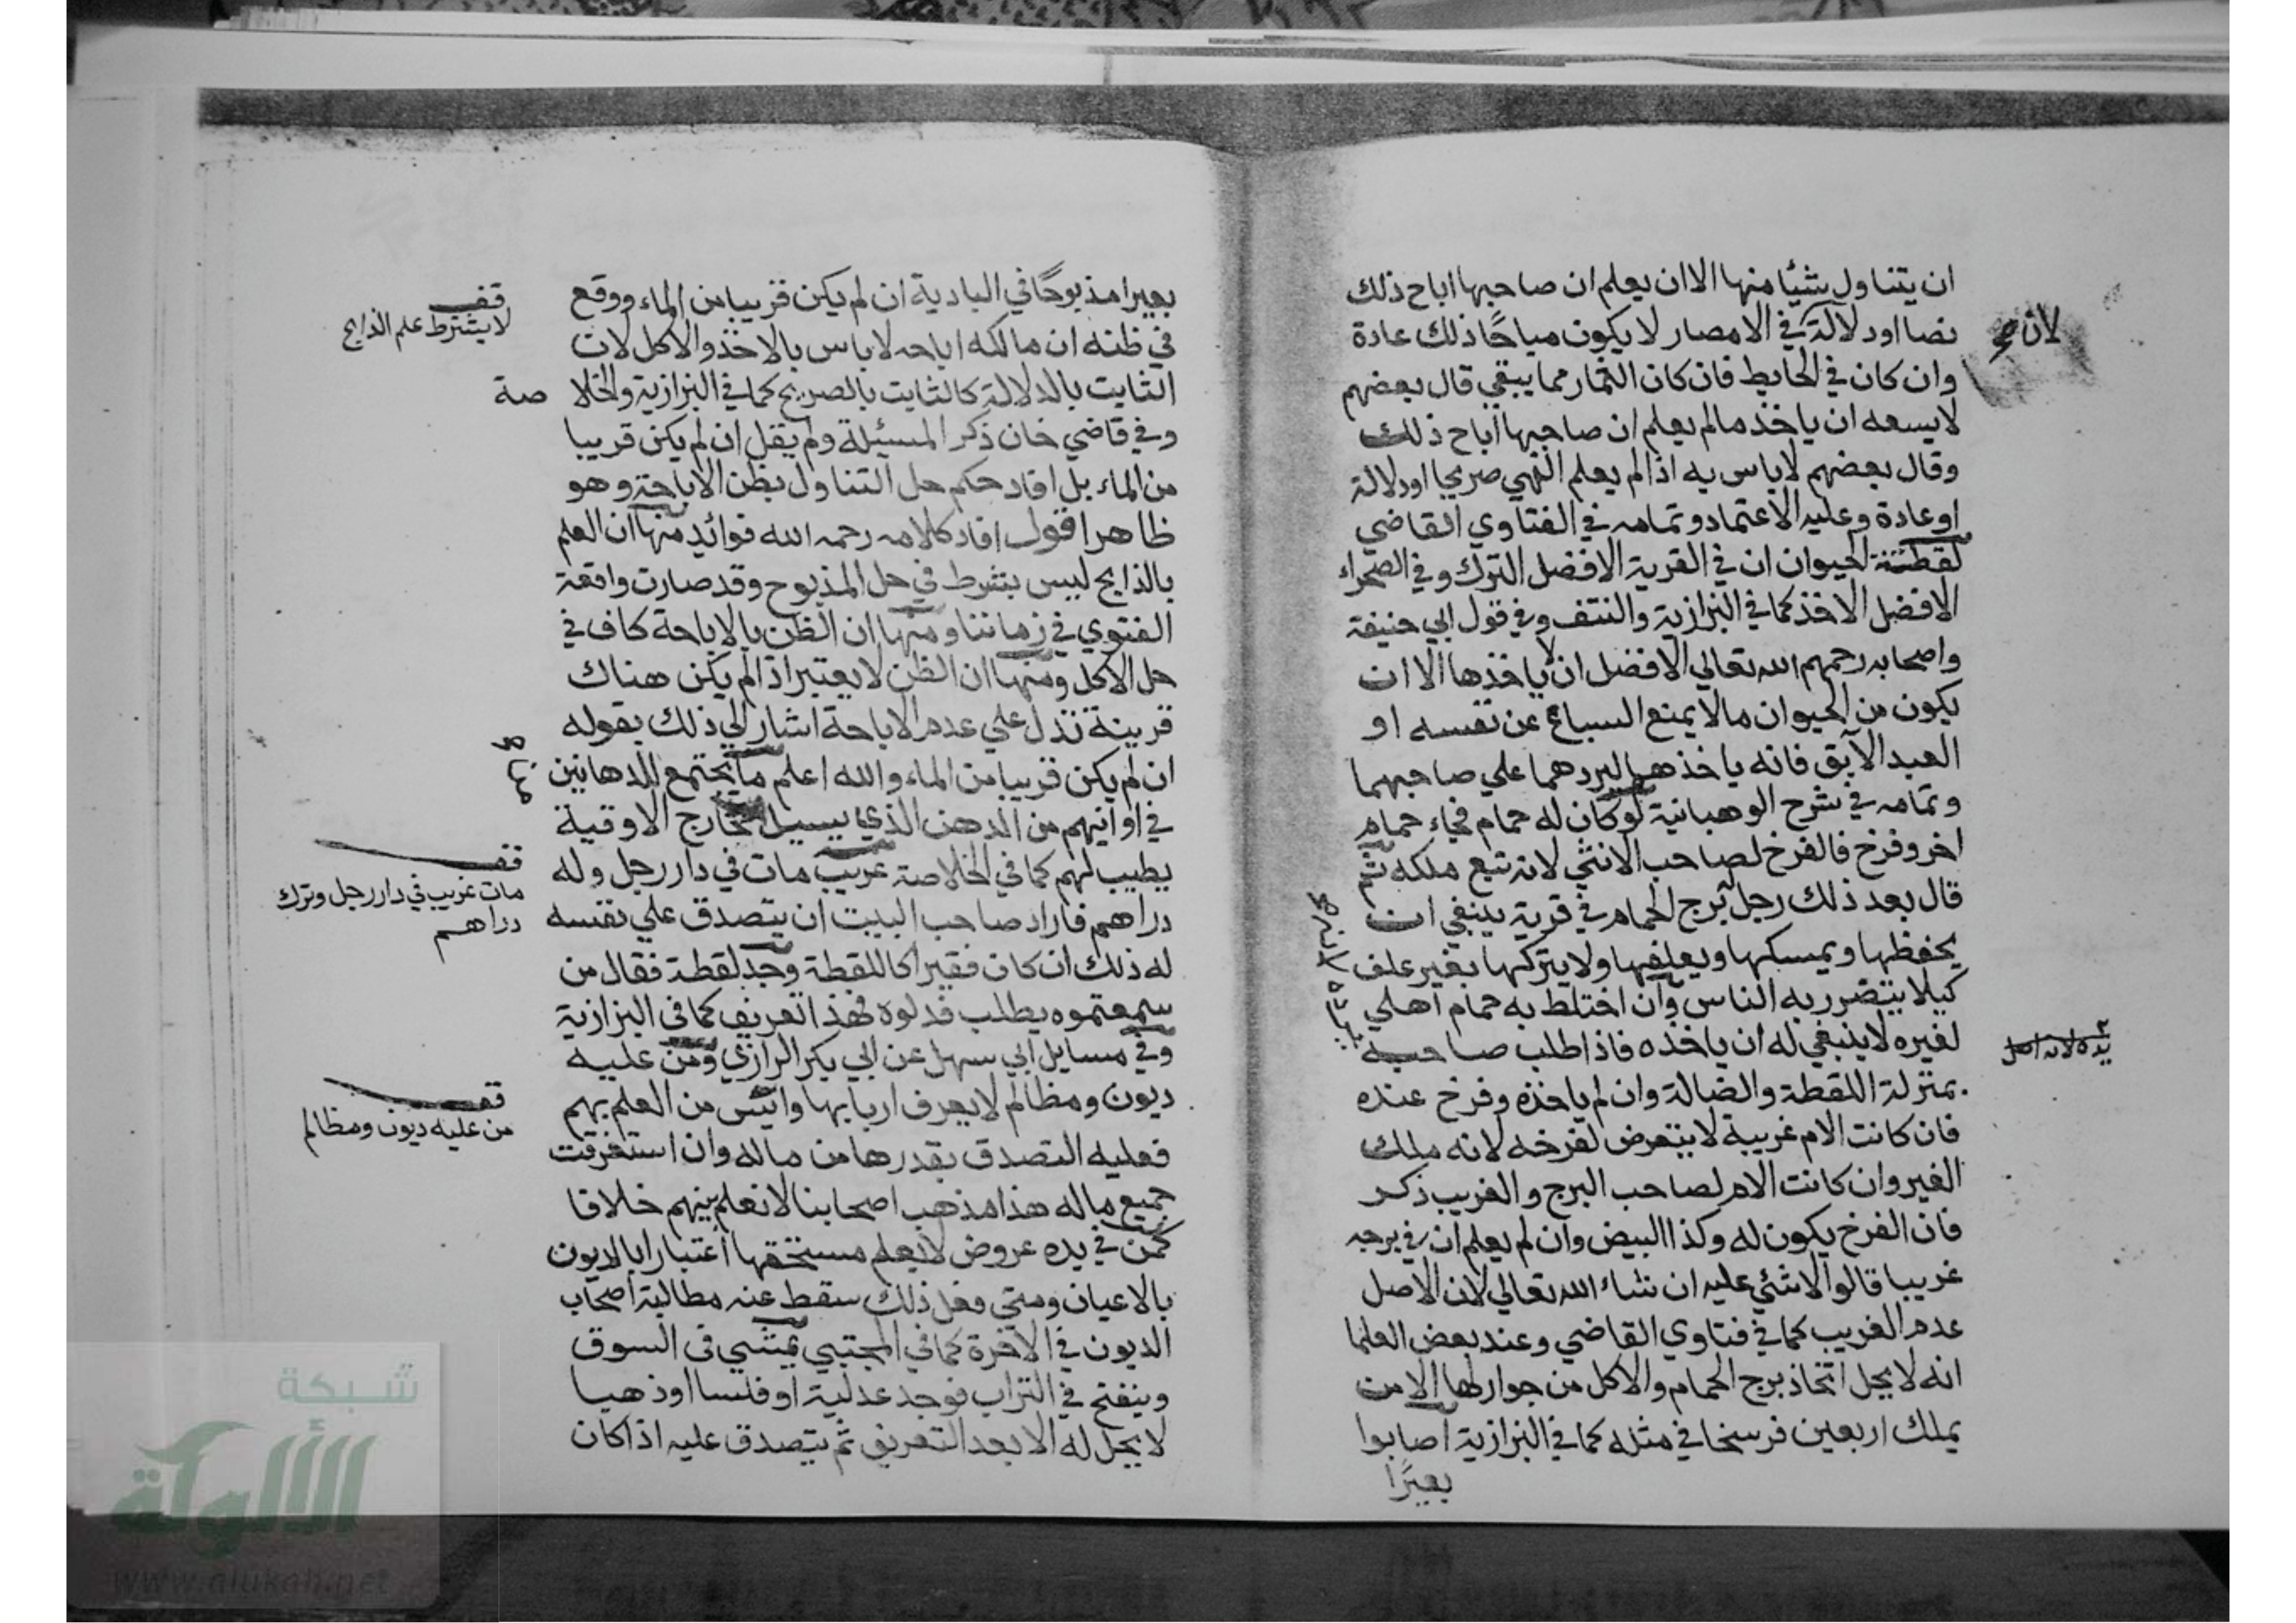 ان يتناول شيئا منها الا ان يعلم ان صاحبها اباح ذلك
نصا او دلالة في الامصار لا يكون مباحًا ذلك عادة
لان
وان كان في الحايط فان كان الثمار مما يبقي قال بعضهم
لا يسعه ان ياخذ مالم يعلم ان صاحبها اباح ذلك
وقال بعضهم لا باس به اذا لم يعلم النهي صريحا او دلالة
او عادة وعليه الاعتماد وتمامه في الفتاوي القاضي
لقطة الحيوان ان في القرية الافضل الترك وفي الصحراء
الافضل الاخذ كما في البزازية والنتف وفي قول ابي حنيفة
واصحابه رحمهم الله تعالي الافضل ان لا ياخذها الا ان
يكون من الحيوان مالا يمنع السباع عن نفسه او
العبد الآبق فانه ياخذهما ليردهما علي صاحبهما
وتمامه في شرح الوهبانية لو كان له حمام فجاء حمام
اخر وفرخ فالفرخ لصاحب الانثي لانه تبع ملكه ثم
قال بعد ذلك رجل له برج الحمام في قرية ينبغي ان
يحفظها ويمسكها ويعلفها ولا يتركها بغير علف
كيلا يتضرر به الناس وان اختلط به حمام اهلي
لغيره لا ينبغي له ان ياخذه فاذا طلب صاحبه
بمنزلة اللقطة والضالة وان لم ياخذه وفرخ عنده
فان كانت الام غريبة لا يتعرض لفرخه لانه ملك
الغير وان كانت الام لصاحب البرج والغريب ذكر
فان الفرخ يكون له وكذا البيض وان لم يعلم ان في برجه
غريبا قالوا لا شئي عليه ان شاء الله تعالي لان الاصل
عدم الغريب كما في فتاوي القاضي وعند بعض العلما
انه لا يحل اتخاذ برج الحمام والاكل من جوارلها الا من
يملك اربعين فرسخا في مثله كما في البزازية اصابوا
بعيرًا
بعيرا مذبوحًا في البادية ان لم يكن قريبا من الماء ووقع
في ظنه ان مالكه اباحه لا باس بالاخذ والاكل لان
الثابت بالدلالة كالثابت بالصريح كما في البزازية والخلا صة
وفي قاضي خان ذكر المسئيلة ولم يقل ان لم يكن قريبا
من الماء بل افاد حكم حل التناول بظن الاباحة وهو
ظاهر اقول افاد كلامه رحمه الله فوائد منها ان العلم
بالذابح ليس بشرط في حل المذبوح وقد صارت واقعة
الفتوي في زماننا ومنها ان الظن بالاباحة كاف في
حل الاكل ومنها ان الظن لا يعتبر اذا لم يكن هناك
قرينة تدل علي عدم الاباحة اشار الي ذلك بقوله
ان لم يكن قريبا من الماء والله اعلم ما يجتمع للدهانين
في اوانيهم من الدهن الذي يسيل خارج الاوقية
يطيب لهم كما في الخلاصة غريب مات في دار رجل وله
دراهم فاراد صاحب البيت ان يتصدق علي نفسه
له ذلك ان كان فقيرا كاللقطة وجد لقطة فقال من
سمعتموه يطلب فدلوه فهذا تعريف كما في البزازية
وفي مسايل ابي سهل عن ابي بكر الرازي ومن عليه
ديون ومظالم لا يعرف اربابها وائيس من العلم بهم
فعليه التصدق بقدرها من ماله وان استغرقت
جميع ماله هذا مذهب اصحابنا لا نعلم بينهم خلافا
كمن في يده عروض لا يعلم مستحقها اعتبارا بالديون
بالاعيان ومتي فعل ذلك سقط عنه مطالبة اصحاب
الديون في الاخرة كما في المجتبي يمشي في السوق
وينفتح في التراب فوجد عدلية او فلسا او ذهبا
لا يحل له الا بعد التعريف ثم يتصدق عليه اذا كان
قف
لا يشترط علم الذابح
قف
مات غريب في دار رجل وترك
دراهم
قف
من عليه ديون ومظالم
شبكة
الألوكة
www.alukah.net